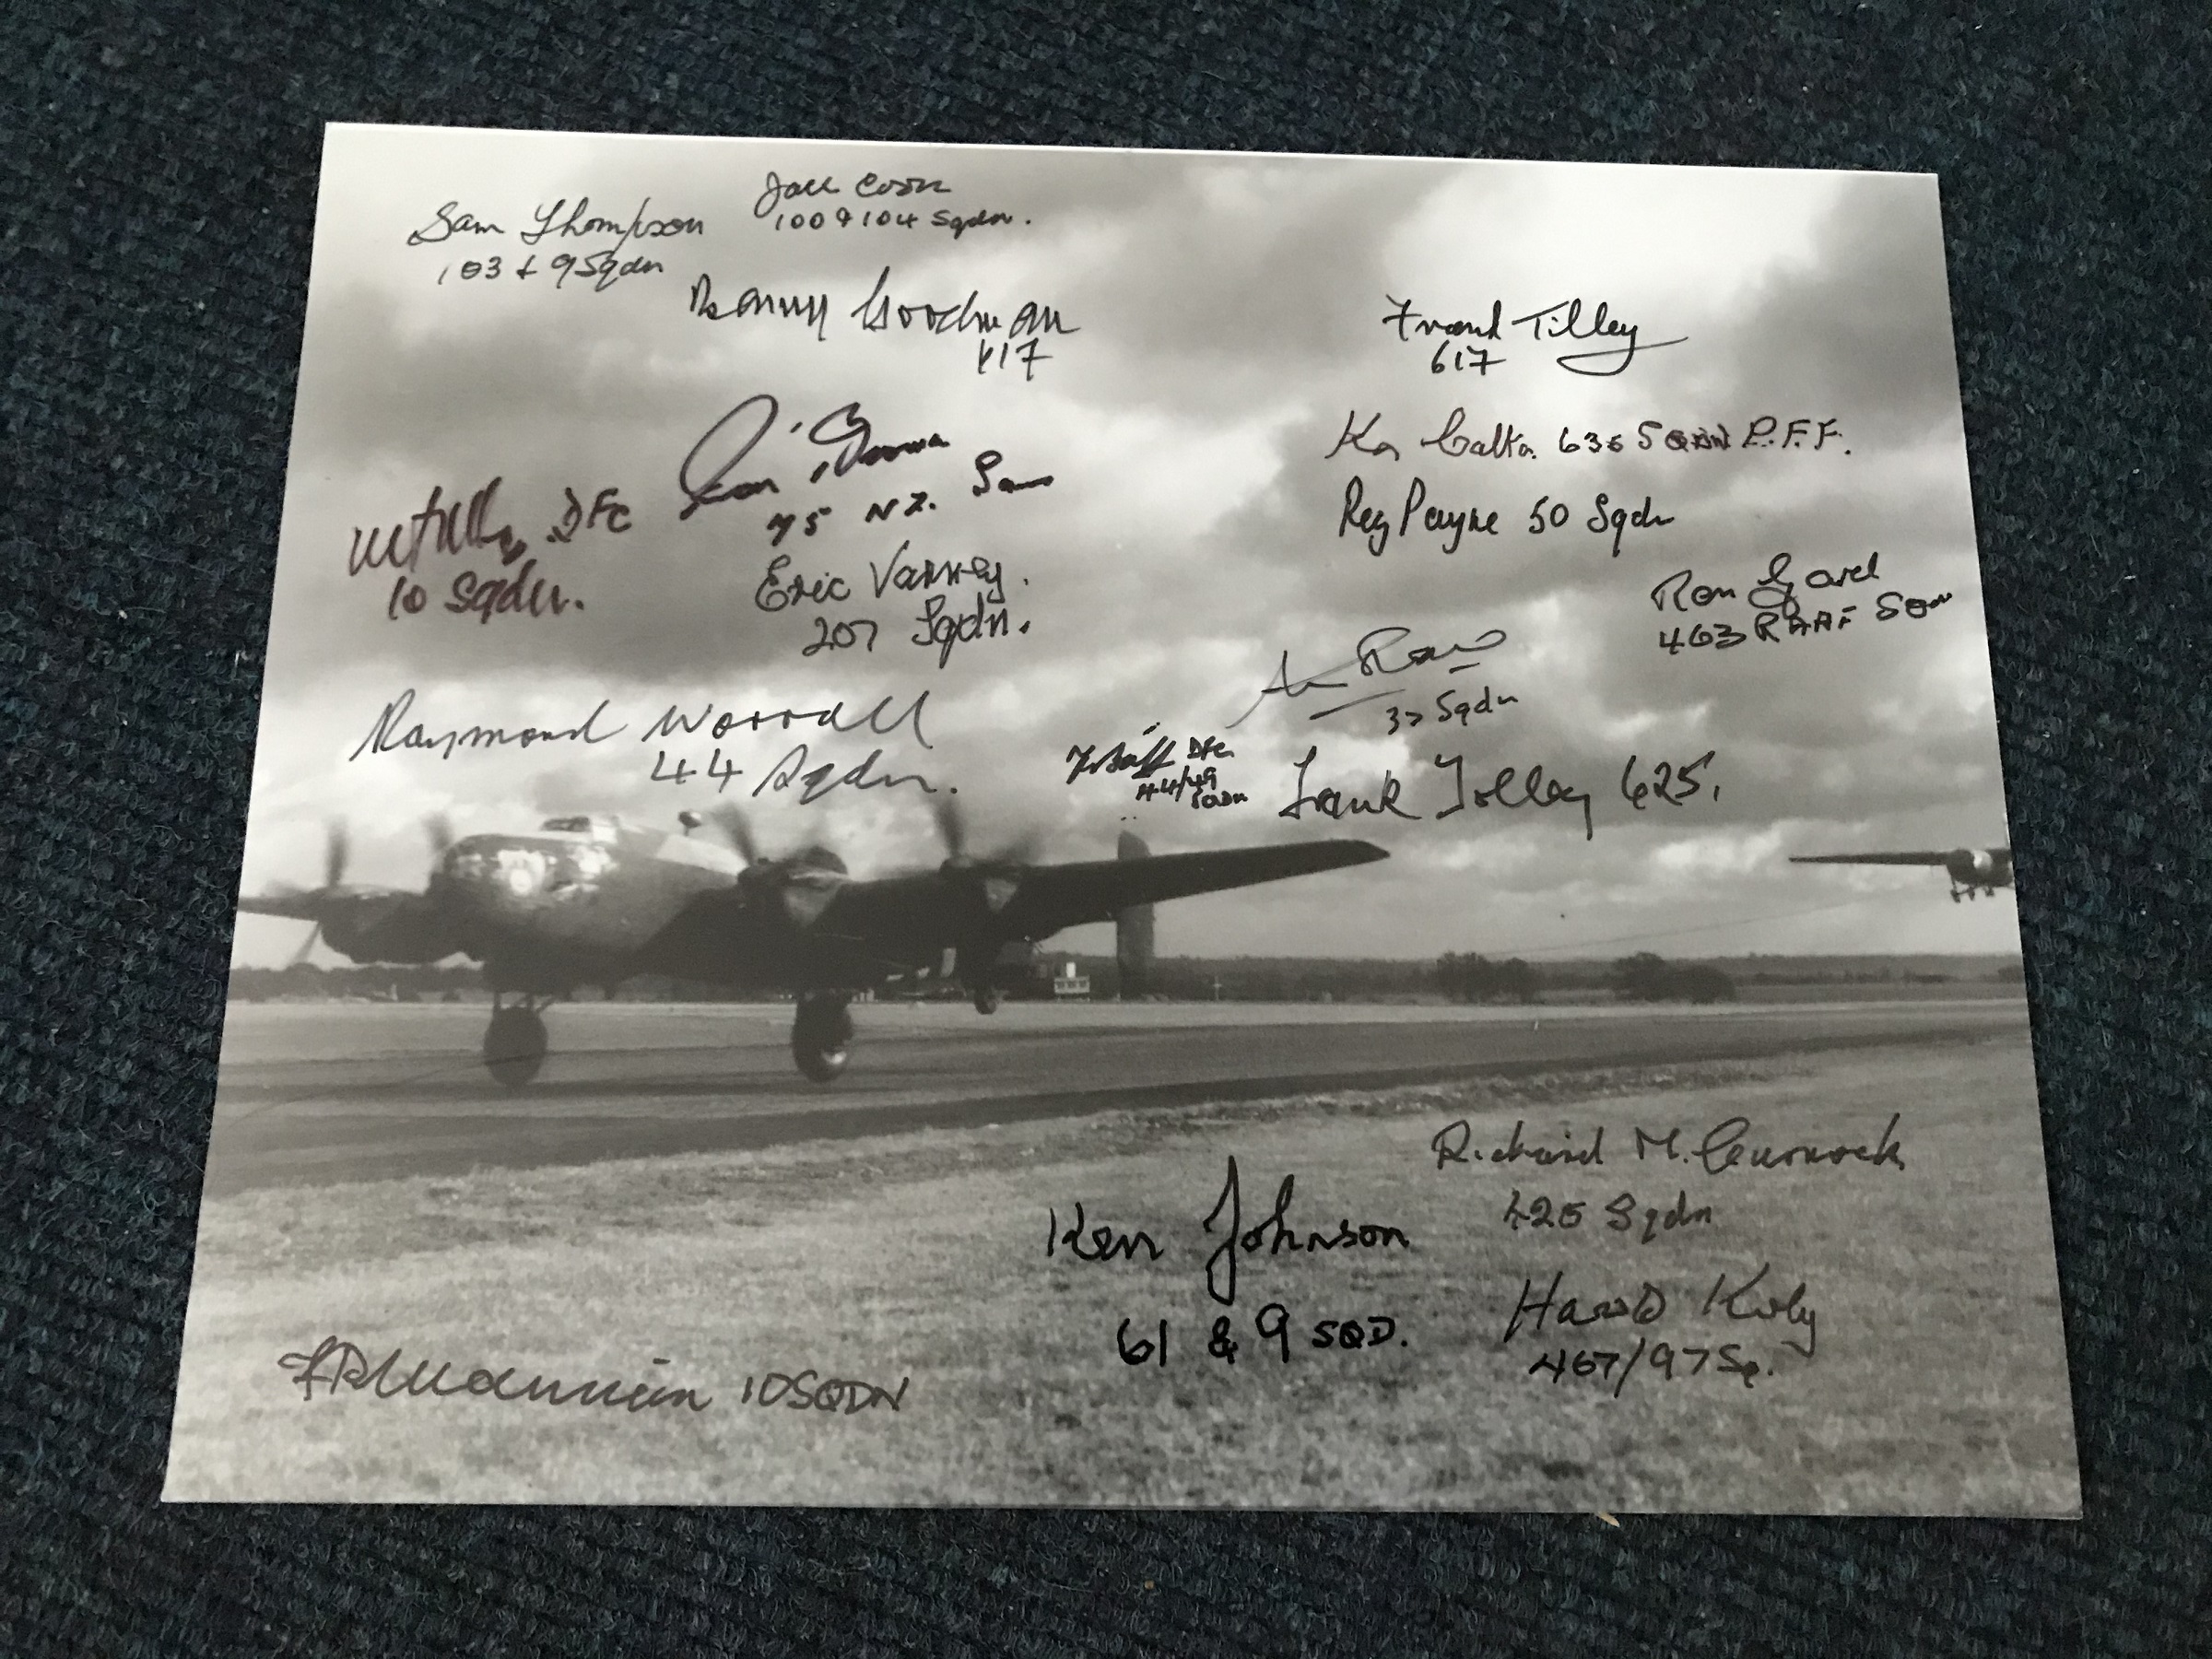 Sam Thompson
103 & 9 Sqdn
Jack
100 & 104 Sqdn.
Benny Goodman
617
Frank Tilley
617
635 SQDN P.F.F.
Reg Payne 50 Sqdn
DFC
10 Sqdn.
75 NZ.
Eric Varney.
207 Sqdn.
Ron
463 RAAF SQDN
37 Sqdn
Raymond Worrall
44 Sqdn.
DFC
44/49
SQDN
Frank Tolley 625.
Richard M. Curnock
425 Sqdn
Ken Johnson
61 & 9 SQD.
Harold Kirby
467/97 Sq.
10 SQDN